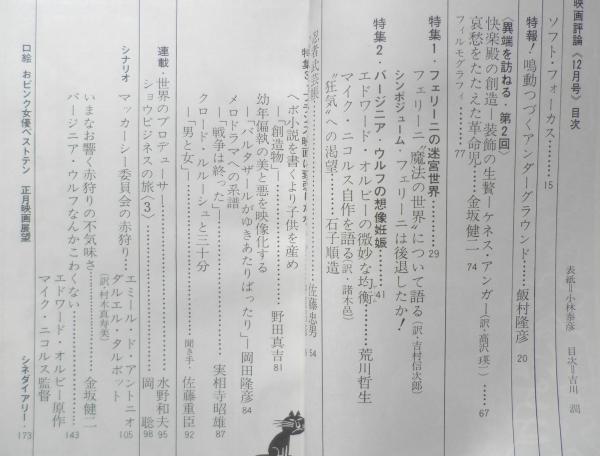 映画評論《12月号》目次
表紙=小林泰彦 目次=吉川 潤
ソフト・フォーカス……15
特報!鳴動つづくアンダーグラウンド……飯村隆彦 20
《異端を訪ねる・第2回》
快楽殿の創造―装飾の生贄―ケネス・アンガー(訳・高沢瑛一)……67
哀愁をたたえた革命児……金坂健二 74
フィルモグラフィ……77
特集1・フェリーニの迷宮世界……29
フェリーニ“魔法の世界”について語る(訳・吉村信次郎)
シンポジューム・フェリーニは後退したか!
特集2・バージニア・ウルフの想像妊娠……41
エドワード・オルビーの微妙な均衡……荒川哲生
マイク・ニコルス自作を語る(訳・諸木邑)
“狂気”への渇望……石子順造
忍者武芸帳……佐藤忠男 54
ヘボ小説を書くより子供を産め
―「創造物」……野田真吉 81
幼年偏執の美と悪を映像化する
―「バルタザールがゆきあたりばったり」―岡田隆彦 84
メロドラマへの系譜
―「戦争は終った」……実相寺昭雄 87
クロード・ルルーシュと三十分
―「男と女」……聞き手・佐藤重臣 92
連載・世界のプロデューサー……水野和夫 95
ショウビジネスの旅〈3〉……岡 聡 98
シナリオ マッカーシー委員会の赤狩り…エミール・ド・アントニオ
ダルエル・タルボット 105
(訳・村木真寿美)
いまなお響く赤狩りの不気味さ……金坂健二
バージニア・ウルフなんかこわくない……143
エドワード・オルビー原作
マイク・ニコルス監督
口絵 おピンク女優ベストテン 正月映画展望
シネダイアリー・173